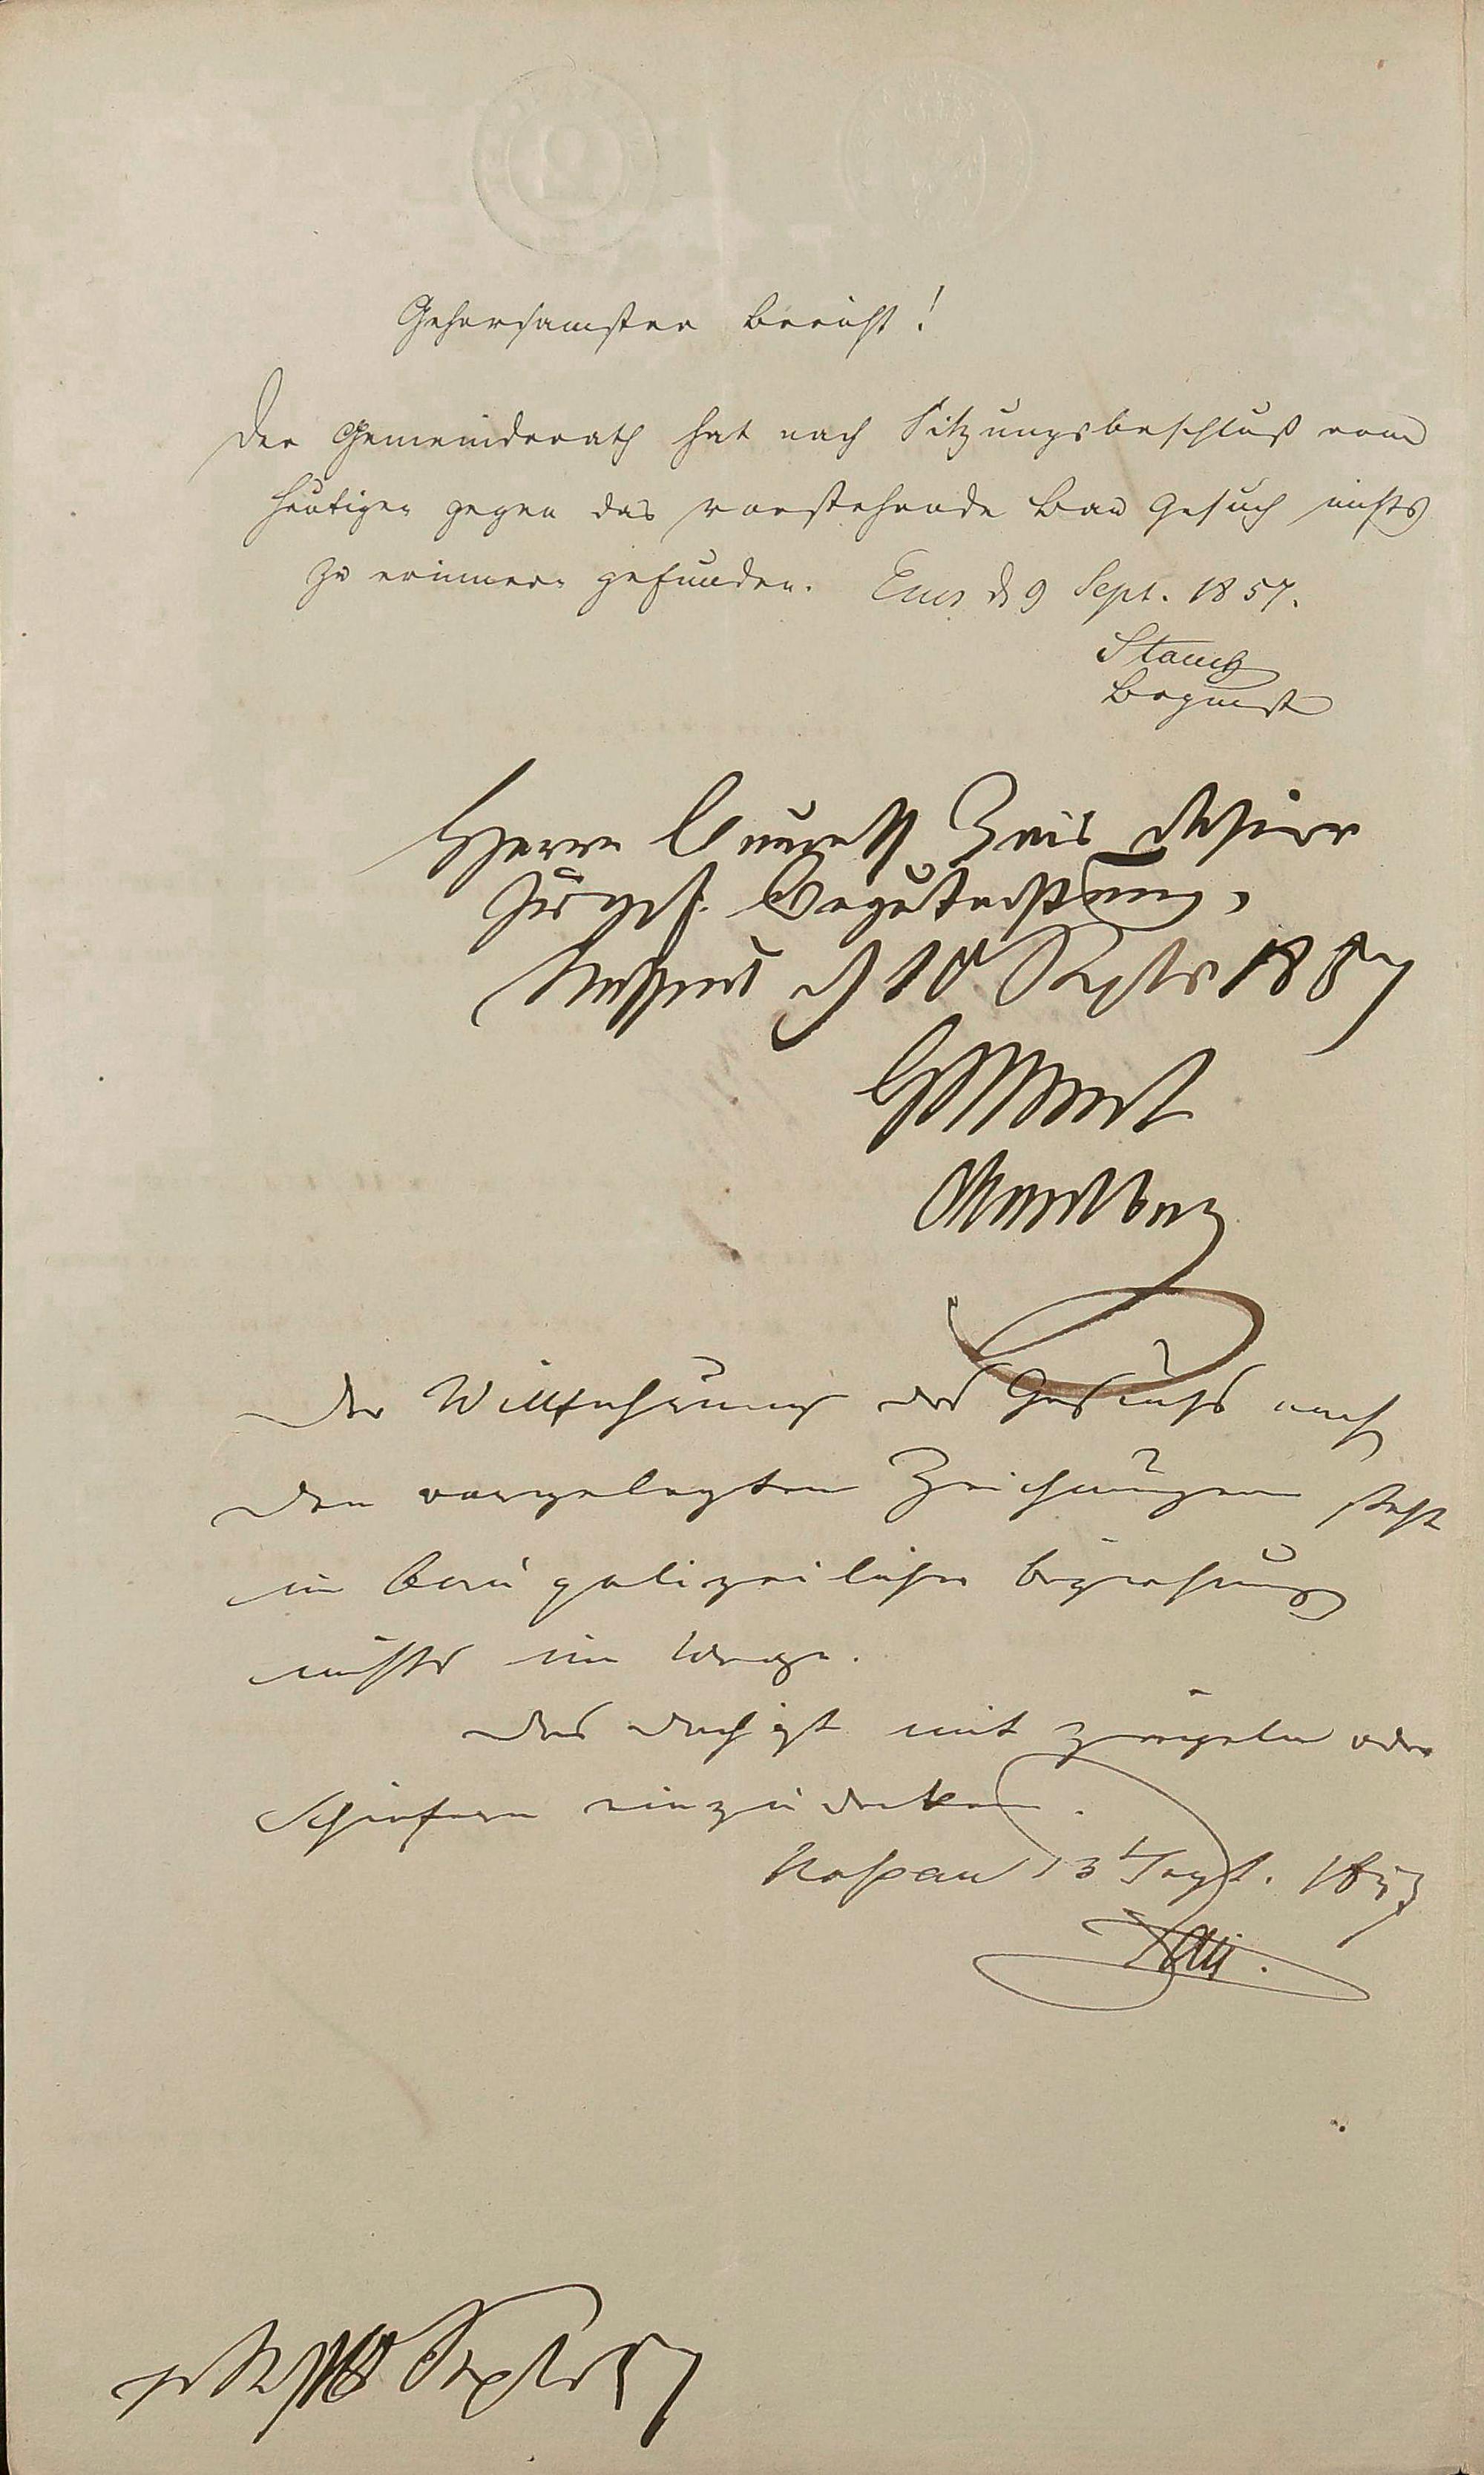 Gehorsamster Bericht!
Der Gemeinderath hat nach Sitzungsbeschluß vom
heutigen gegen das vorstehende Bau Gesuch nichts
zu erinnern gefunden. Ems d 9 Sept. 1857.
Herrn Zais
zur gef. Begutachtung,
Nassau d 10 Septr 1857
Der Willfahrung des Gesuchs nach
den vorgelegten Zeichnungen steht
in baupolizeilicher Beziehung
nichts im Wege.
Das Dach ist mit Ziegeln oder
Schiefern einzudecken.
Nassau 13 Sept. 1857
Zais.
Septr 57